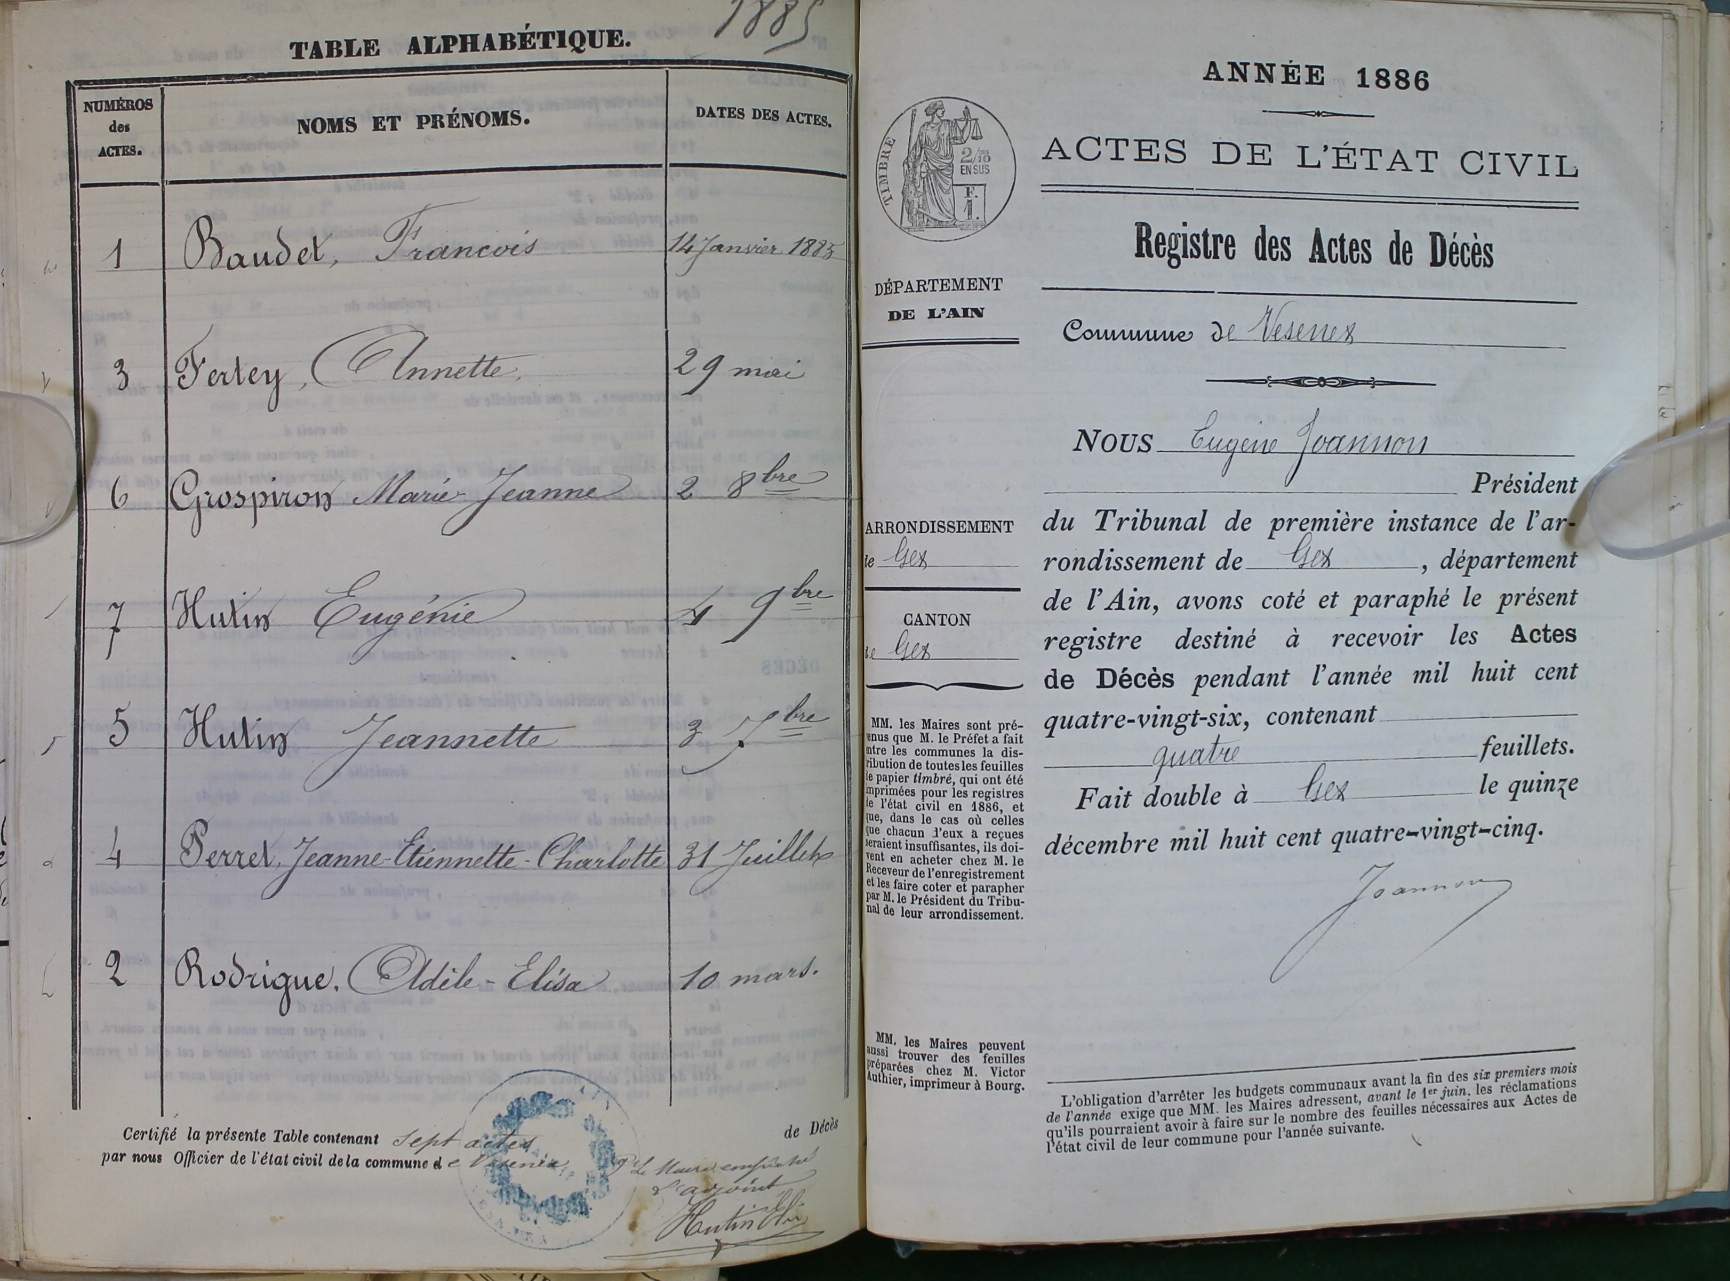 1885
TABLE ALPHABÉTIQUE.
NUMÉROS des ACTES.
NOMS ET PRÉNOMS.
DATES DES ACTES.
1 Baudet, François 14 Janvier 1885
3 Fertey, Annette, 29 mai
6 Grospiron Marie-Jeanne 2 8bre
7 Hutin Eugénie 4 9bre
5 Hutin Jeannette 3 7bre
4 Perret, Jeanne-Etiennette-Charlotte 31 Juillet
2 Rodrigue, Adèle-Elisa 10 mars.
Certifié la présente Table contenant sept actes de Décès
par nous Officier de l'état civil de la commune de Vesenex
Le Maire empêché
L'adjoint
Hutin
ANNÉE 1886
ACTES DE L'ÉTAT CIVIL
Registre des Actes de Décès
TIMBRE
2/10
EN SUS
F.
1.
DÉPARTEMENT
DE L'AIN
Commune de Vesenex
NOUS Eugène Joannon
Président
du Tribunal de première instance de l'ar-
rondissement de Gex, département
de l'Ain, avons coté et paraphé le présent
registre destiné à recevoir les Actes
de Décès pendant l'année mil huit cent
quatre-vingt-six, contenant
quatre feuillets.
Fait double à Gex le quinze
décembre mil huit cent quatre-vingt-cinq.
Joannon
ARRONDISSEMENT
de Gex
CANTON
de Gex
MM. les Maires sont pré-
venus que M. le Préfet a fait
entre les communes la dis-
tribution de toutes les feuilles
de papier timbré, qui ont été
imprimées pour les registres
de l'état civil en 1886, et
que, dans le cas où celles
que chacun d'eux a reçues
seraient insuffisantes, ils doi-
vent en acheter chez M. le
Receveur de l'enregistrement
et les faire coter et parapher
par M. le Président du Tribu-
nal de leur arrondissement.
MM. les Maires peuvent
aussi trouver des feuilles
préparées chez M. Victor
Authier, imprimeur à Bourg.
L'obligation d'arrêter les budgets communaux avant la fin des six premiers mois
de l'année exige que MM. les Maires adressent, avant le 1er juin, les réclamations
qu'ils pourraient avoir à faire sur le nombre des feuilles nécessaires aux Actes de
l'état civil de leur commune pour l'année suivante.